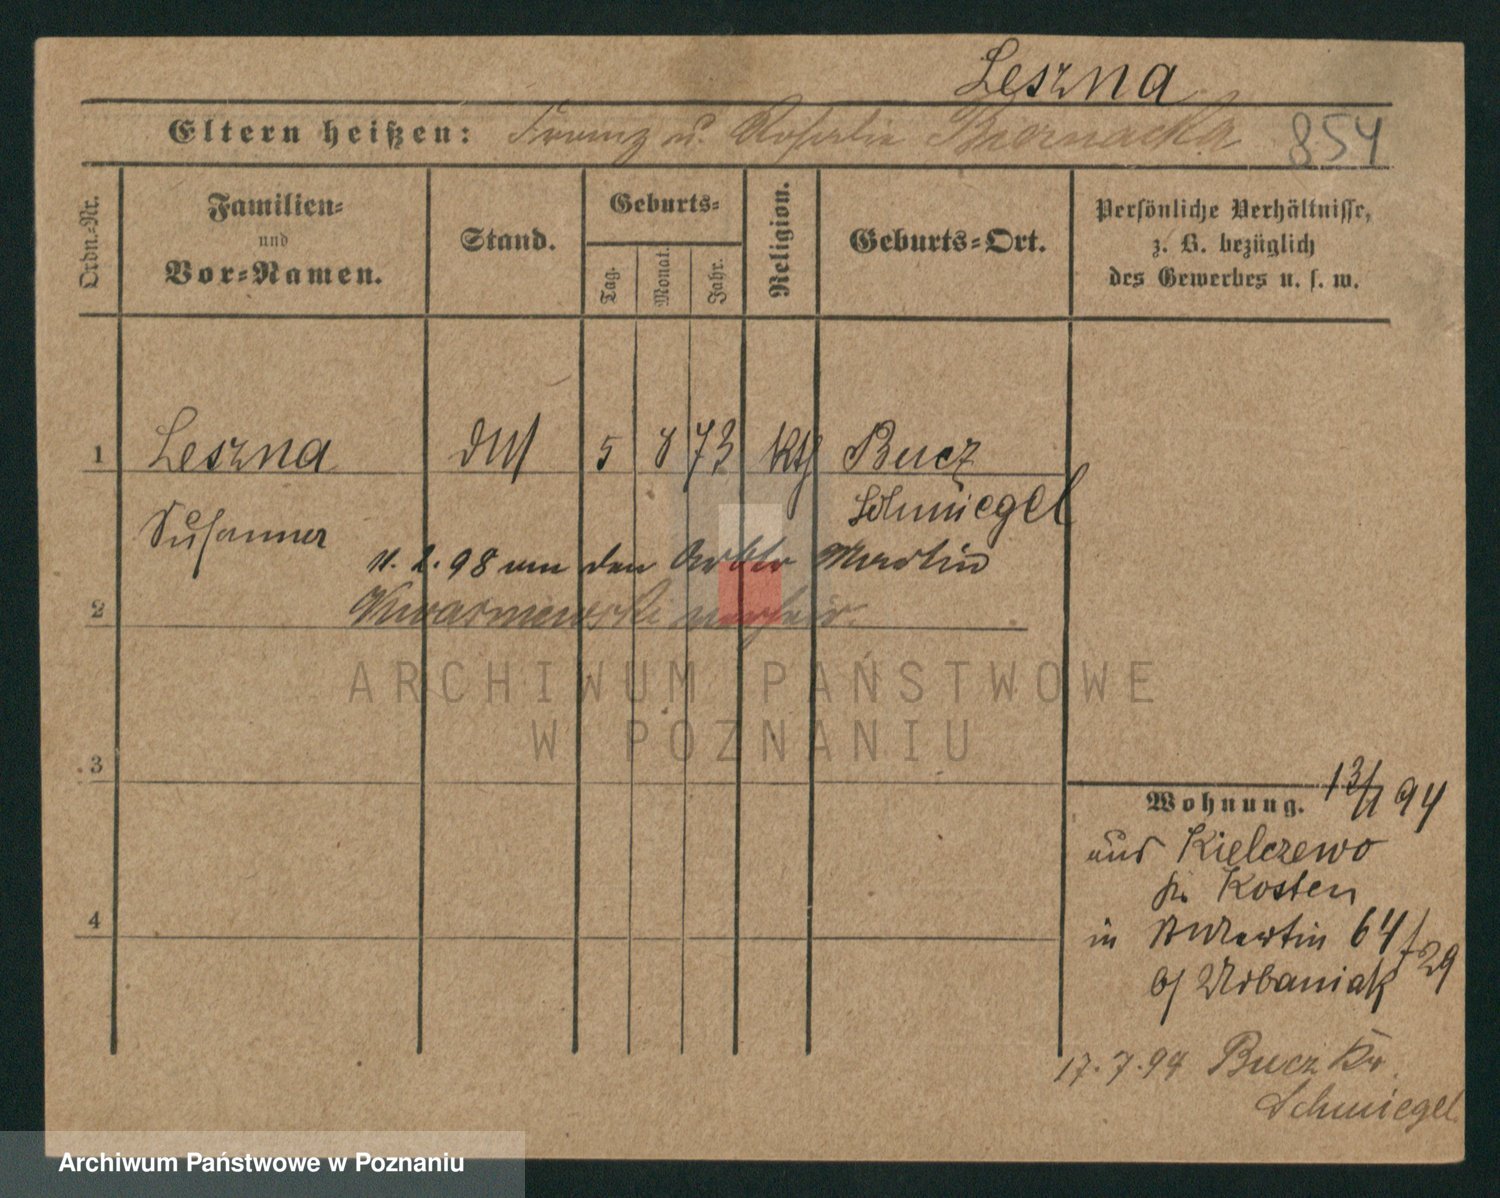 Leszna
Eltern heißen: Franz u. Rosalie Biernacka 854
Ordn.-Nr.
Familien-
und
Vor-Namen.
Stand.
Geburts-
Tag.
Monat.
Jahr.
Religion.
Geburts-Ort.
Persönliche Verhältnisse,
z. B. bezüglich
des Gewerbes u. s. w.
1 Leszna 5 8 73 kth Bucz
Schmiegel
Susanna
11. 2. 98 an den Arbtr Martin
2 Kwasniewski
ARCHIWUM PAŃSTWOWE
W POZNANIU
3
Wohnung. 13/1 94
aus Kielczewo
Kosten
in St Martin 64/29
b/ Urbaniak
4
17. 7. 94 Bucz Kr
Schmiegel
Archiwum Państwowe w Poznaniu